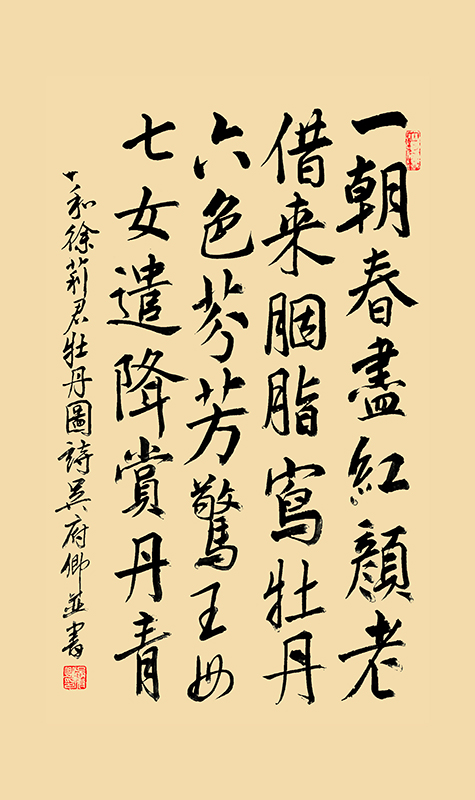 一朝春盡紅顔老
借来胭脂寫牡丹
六色芬芳驚王母
七女遣降賞丹青
十和徐莉君牡丹圖詩吴府卿並書